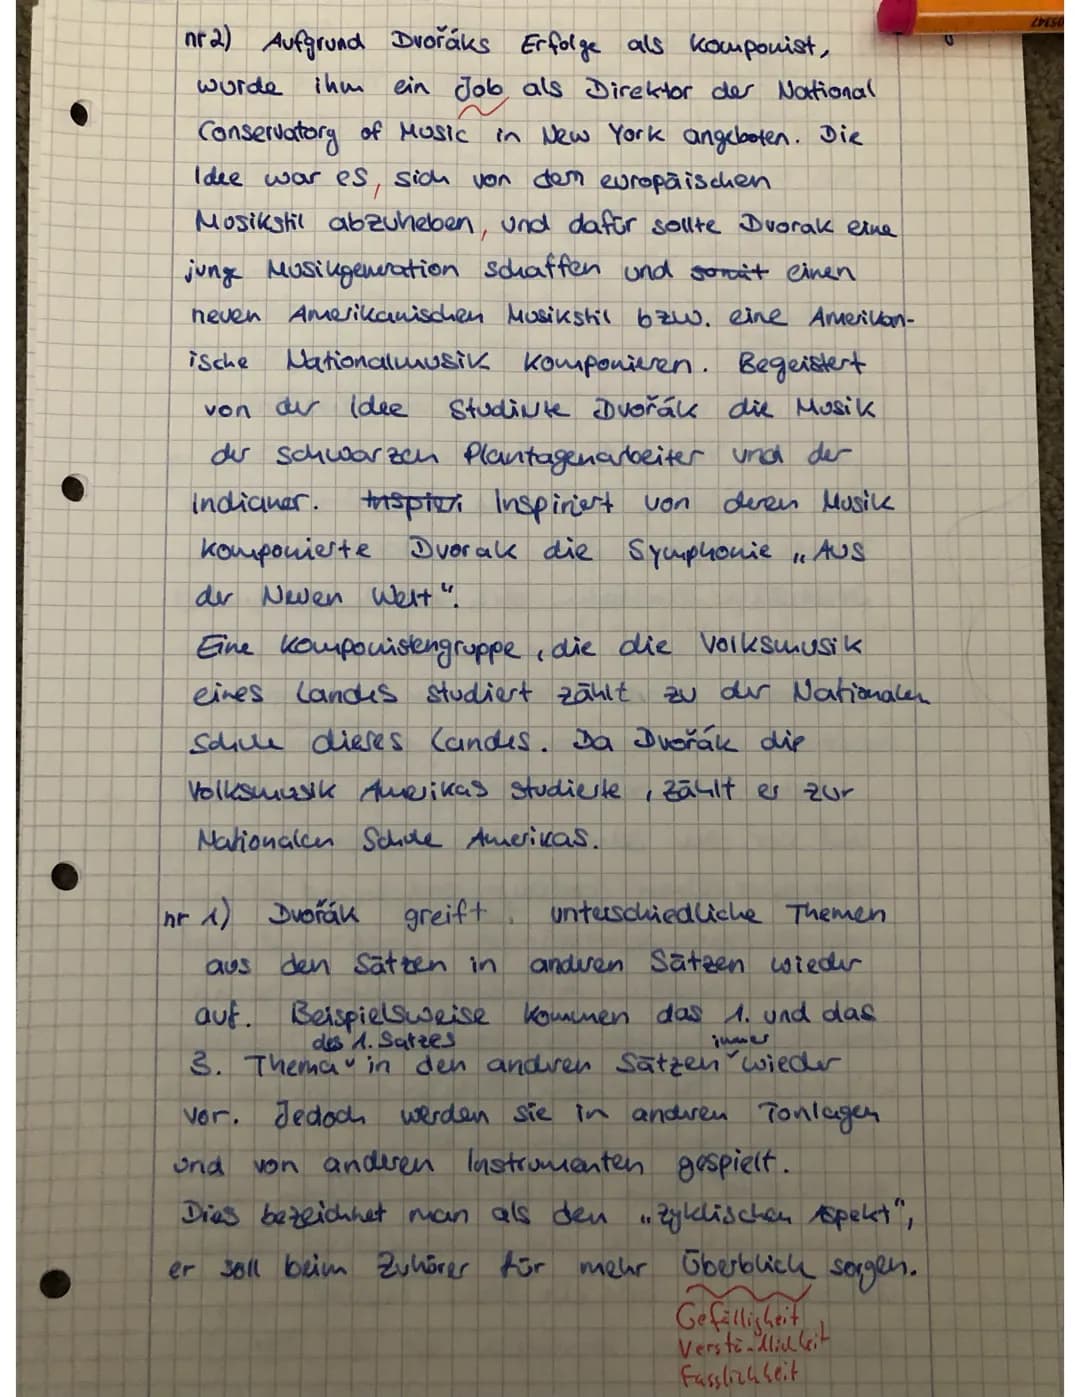 05347
nr 2) Aufgrund Dvořáks Erfolge als Komponist,
wurde ihm ein Job als Direktor der National
Conservatory of Music in New York angeboten. Die
Idee war es, sich von dem europäischen
Musikstil abzuheben, und dafür sollte Dvorak eine
junge Musikgeneration schaffen und somit einen
neuen Amerikanischen Musikstil bzw. eine Amerikan-
ische Nationalmusik komponieren. Begeistert
von der Idee studierte Dvořák die Musik
der schwarzen Plantagenarbeiter und der
Indianer. Inspiri Inspiriert von deren Musik
komponierte Dvorak die Symphonie „Aus
der Neuen Welt".
Eine Komponistengruppe, die die Volksmusik
eines Landes studiert zählt zu der Nationalen
Schule dieses Landes. Da Dvořák die
Volksmusik Amerikas studierte, zählt er zur
Nationalen Schule Amerikas.
nr 1) Dvořák greift unterschiedliche Themen
aus den Sätzen in anderen Sätzen wieder
auf. Beispielsweise kommen das 1. und das
des 1. Satzes immer
3. Thema in den anderen Sätzen wieder
vor. Jedoch werden sie in anderen Tonlagen
und von anderen Instrumenten gespielt.
Dies bezeichnet man als den „zyklischen Aspekt",
er soll beim Zuhörer für mehr Überblick sorgen.
Gefälligkeit
Verständlichkeit
Fasslichkeit